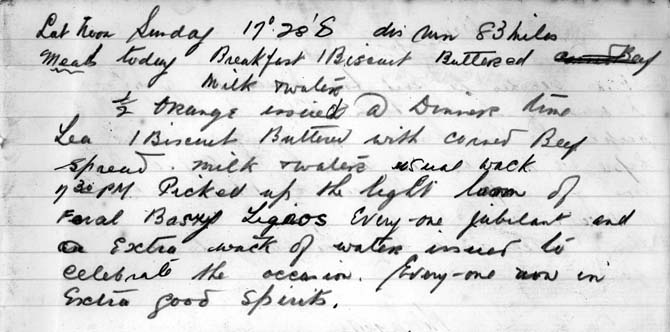 Lat Noon Sunday 17° 28' S dis run 83 miles
Meals today Breakfast 1 Biscuit Buttered Beef
Milk & water
½ Orange issued @ Dinner time
Tea 1 Biscuit Buttered with corned Beef
spread. Milk & water usual wack
7 30 PM Picked up the light of
Every-one jubilant and
Extra wack of water issued to
celebrate the occasion. Every-one now in
Extra good spirits.